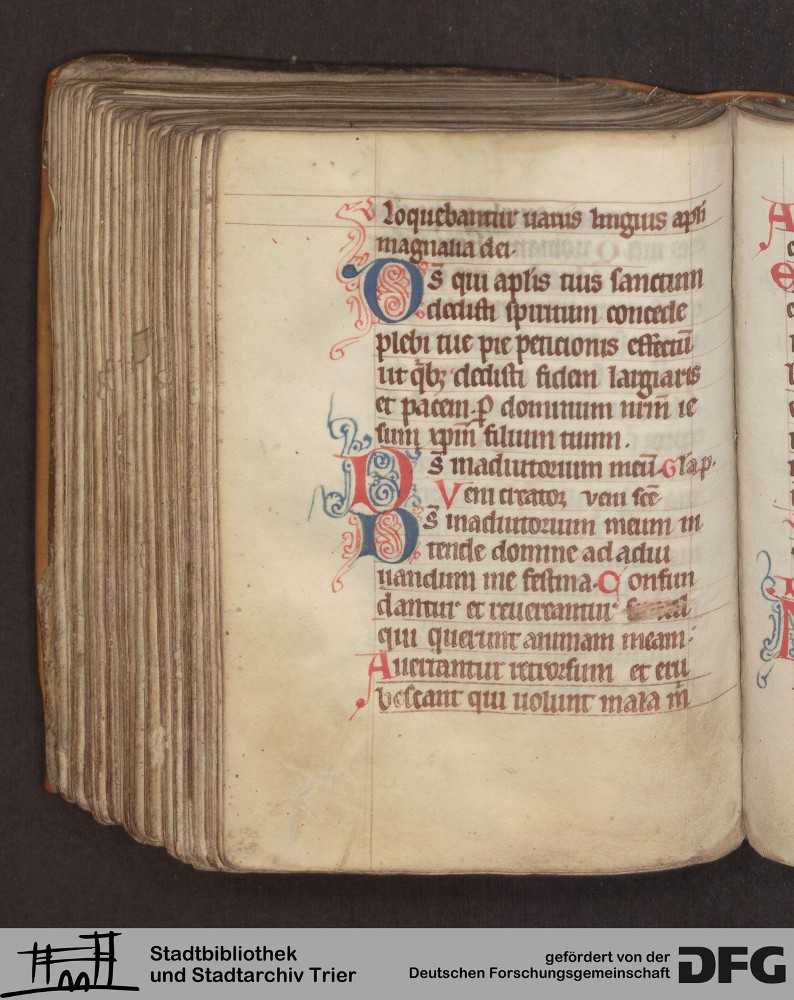 Loquebantur uariis linguis apłi
magnalia dei.
Ds̄ qui aplīs tuis sanctum
dedisti spiritum concede
plebi tue pie peticionis effectū
ut qͥbꝫ dedisti fidem largiaris
et pacem. P̄ dominum nrm̄ ie
sum xpm̄ filium tuum.
Ds̄ inadiutorium meū. Gła p.
Veni creatoꝛ veni sc̄e
Ds̄ inadiutorium meum in
tende domine ad adiu
uandum me festina. Confun
dantur et reuereantur
qui querunt animam meam.
Auertantur retrorsum et eru
bescant qui uolunt mala m̄
Stadtbibliothek
und Stadtarchiv Trier
gefördert von der
Deutschen Forschungsgemeinschaft
DFG